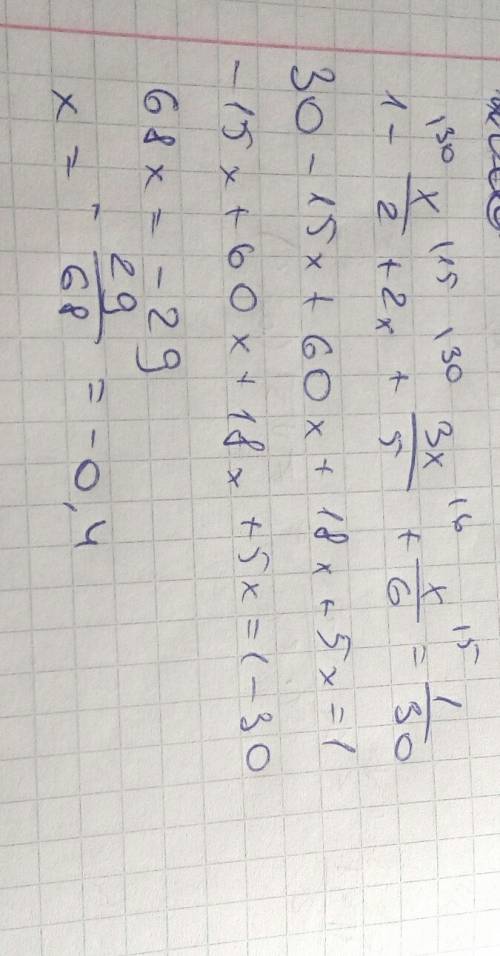 1 |30 - x/2 |15 + 2x |30 + 3x/5 |6 + x/6 |5 = 1/30
30 - 15x + 60x + 18x + 5x = 1
- 15x + 60x + 18x + 5x = 1 - 30
68x = - 29
x = - 29/68 = - 0,4